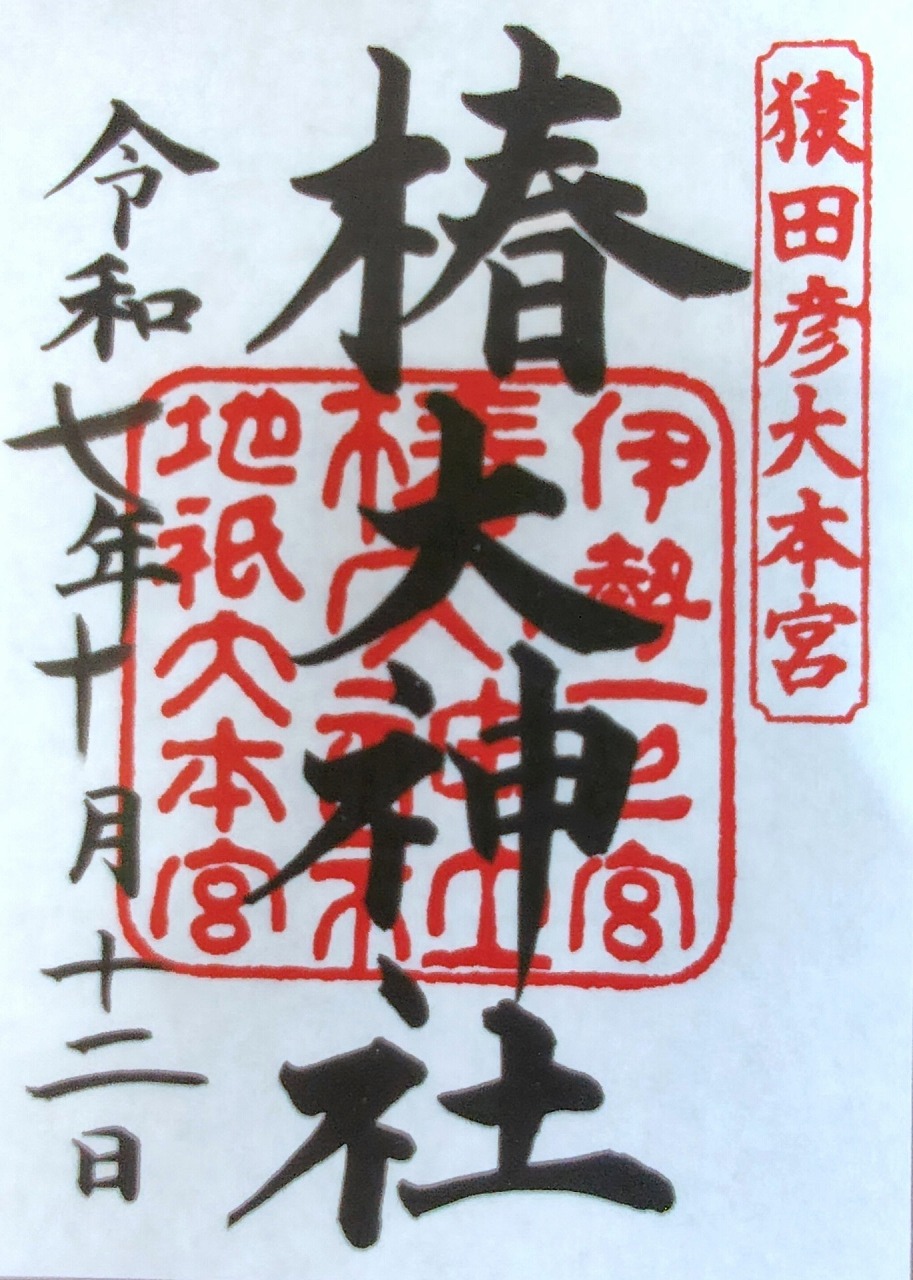 猿田彦大本宮
伊勢一之宮
椿大神社
椿大神社
地祇大本宮
令和七年十月十二日